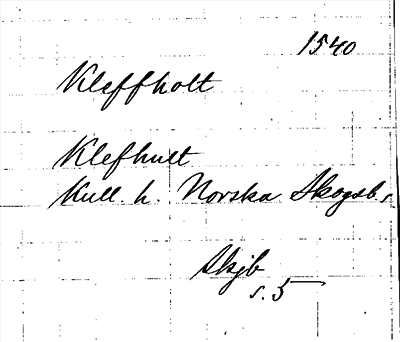 1540
Kleffholt
Klefhult
Kull. h. Norska Skogsb.s.
Skjb
s. 5